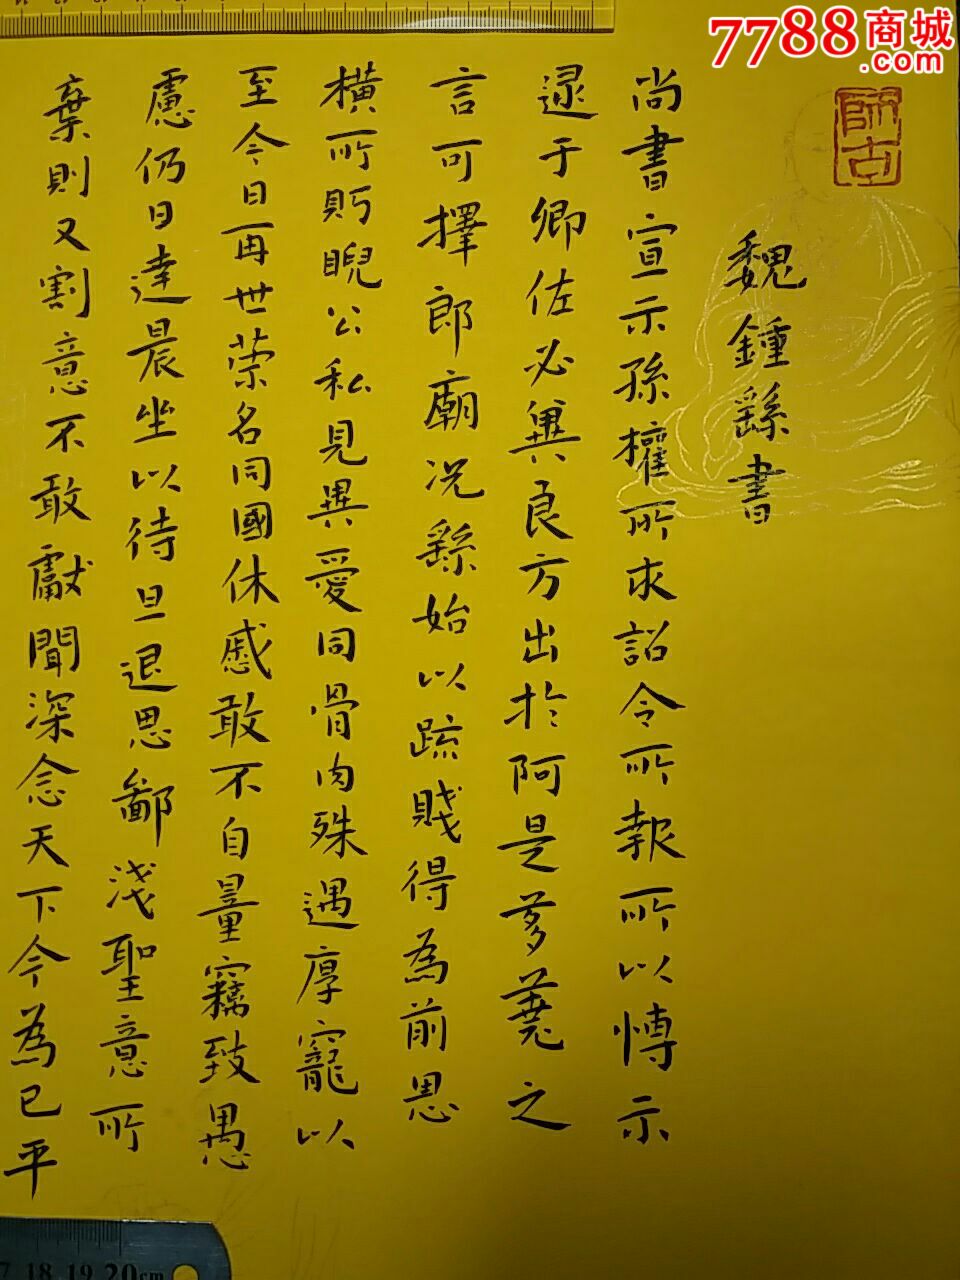 7788商城
.com
師古
魏鍾繇書
尚書宣示孫權所求詔令所報所以博示
逮于卿佐必兾良方出於阿是芻蕘之
言可擇郎廟况繇始以疏賤得為前恩
橫所眄睨公私見異愛同骨肉殊遇厚寵以
至今日再世荣名同國休慼敢不自量竊致愚
慮仍日達晨坐以待旦退思鄙淺聖意所
棄則又割意不敢獻聞深念天下今為已平
17 18 19 20cm